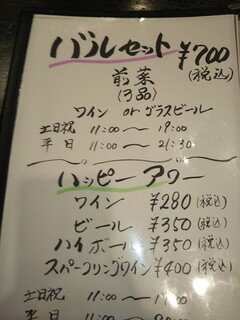 バルセット ¥700
(税込)
前菜
(3品)
ワイン or グラスビール
土日祝 11:00 〜 19:00
平日 11:00 〜 21:30
ハッピーアワー
ワイン ¥280 (税込)
ビール ¥350 (税込)
ハイボール ¥350 (税込)
スパークリングワイン ¥400 (税込)
土日祝 11:00 〜 19:00
平日 11:00